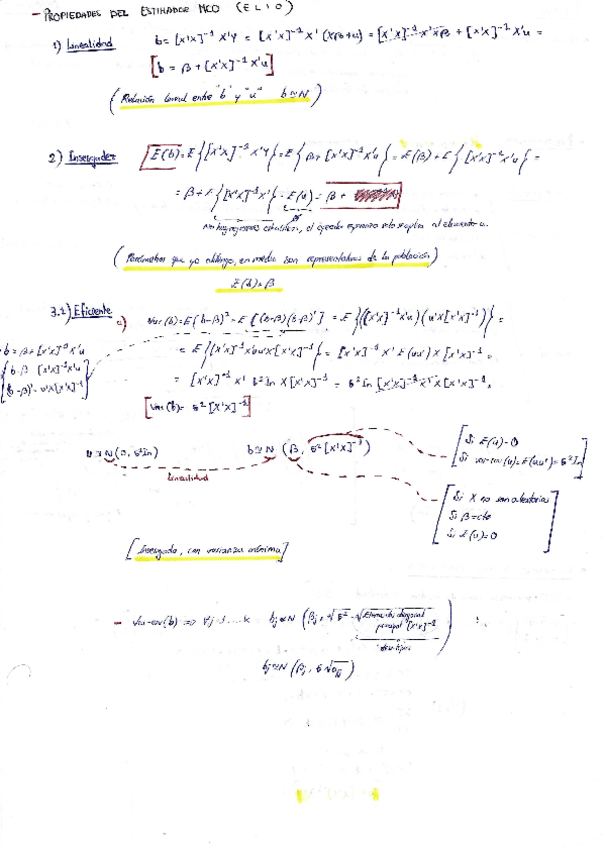 - PROPIEDADES DEL ESTIMADOR MCO (ELIO)
1) Linealidad b = [X'X]⁻¹ X'Y = [X'X]⁻¹ X' (Xβ+u) = [X'X]⁻¹ X'Xβ + [X'X]⁻¹ X'u =
[b = β + [X'X]⁻¹ X'u]
(Relación lineal entre "b" y "u" b≈N)
2) Insesgadez E(b) = E{[X'X]⁻¹ X'Y} = E{β + [X'X]⁻¹ X'u} = E(β) + E{[X'X]⁻¹ X'u} =
= β + E{[X'X]⁻¹ X'} · E(u) = β +
No hay regresores estocásticos, el operador esperanza solo se aplica al elemento u.
(Parámetros que yo obtengo, en media son representativos de la población)
E(b) = β
3.1) Eficiente
a) Var(b) = E(b-β)² = E[(b-β)(b-β)'] = E{([X'X]⁻¹X'u)(u'X[X'X]⁻¹)} =
b = β + [X'X]⁻¹ X'u
b-β [X'X]⁻¹X'u
(b-β)' = u'X[X'X]⁻¹
= E{[X'X]⁻¹X'uu'X[X'X]⁻¹} = [X'X]⁻¹ X' E(uu') X [X'X]⁻¹ =
= [X'X]⁻¹ X' σ²In X[X'X]⁻¹ = σ²In [X'X]⁻¹ X'X [X'X]⁻¹
[Var(b) = σ² [X'X]⁻¹]
u≈N(0, σ²In)
Linealidad
b≈N (β, σ²[X'X]⁻¹)
Si E(u)=0
Si var-cov(u) = E(uu') = σ²In
Si X no son aleatorias
Si β = cte
Si E(u)=0
[Insesgado, con varianza mínima]
- Var-cov(b) => ∀j=1...k bj≈N (βj, √σ² · √Elemento diagonal principal [X'X]⁻¹)
bj≈N (βj, σ√